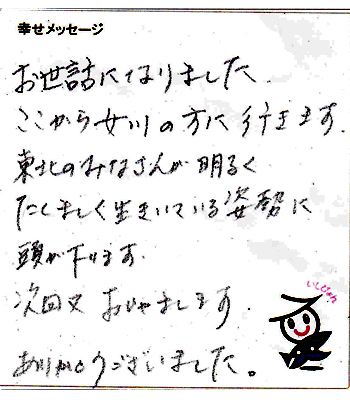 幸せメッセージ
お世話になりました.
ここから女川の方に行きます.
東北のみなさんが明るく
たくましく生きいている姿勢に
頭が下ります.
次回又おじゃまします.
ありがとうございました。